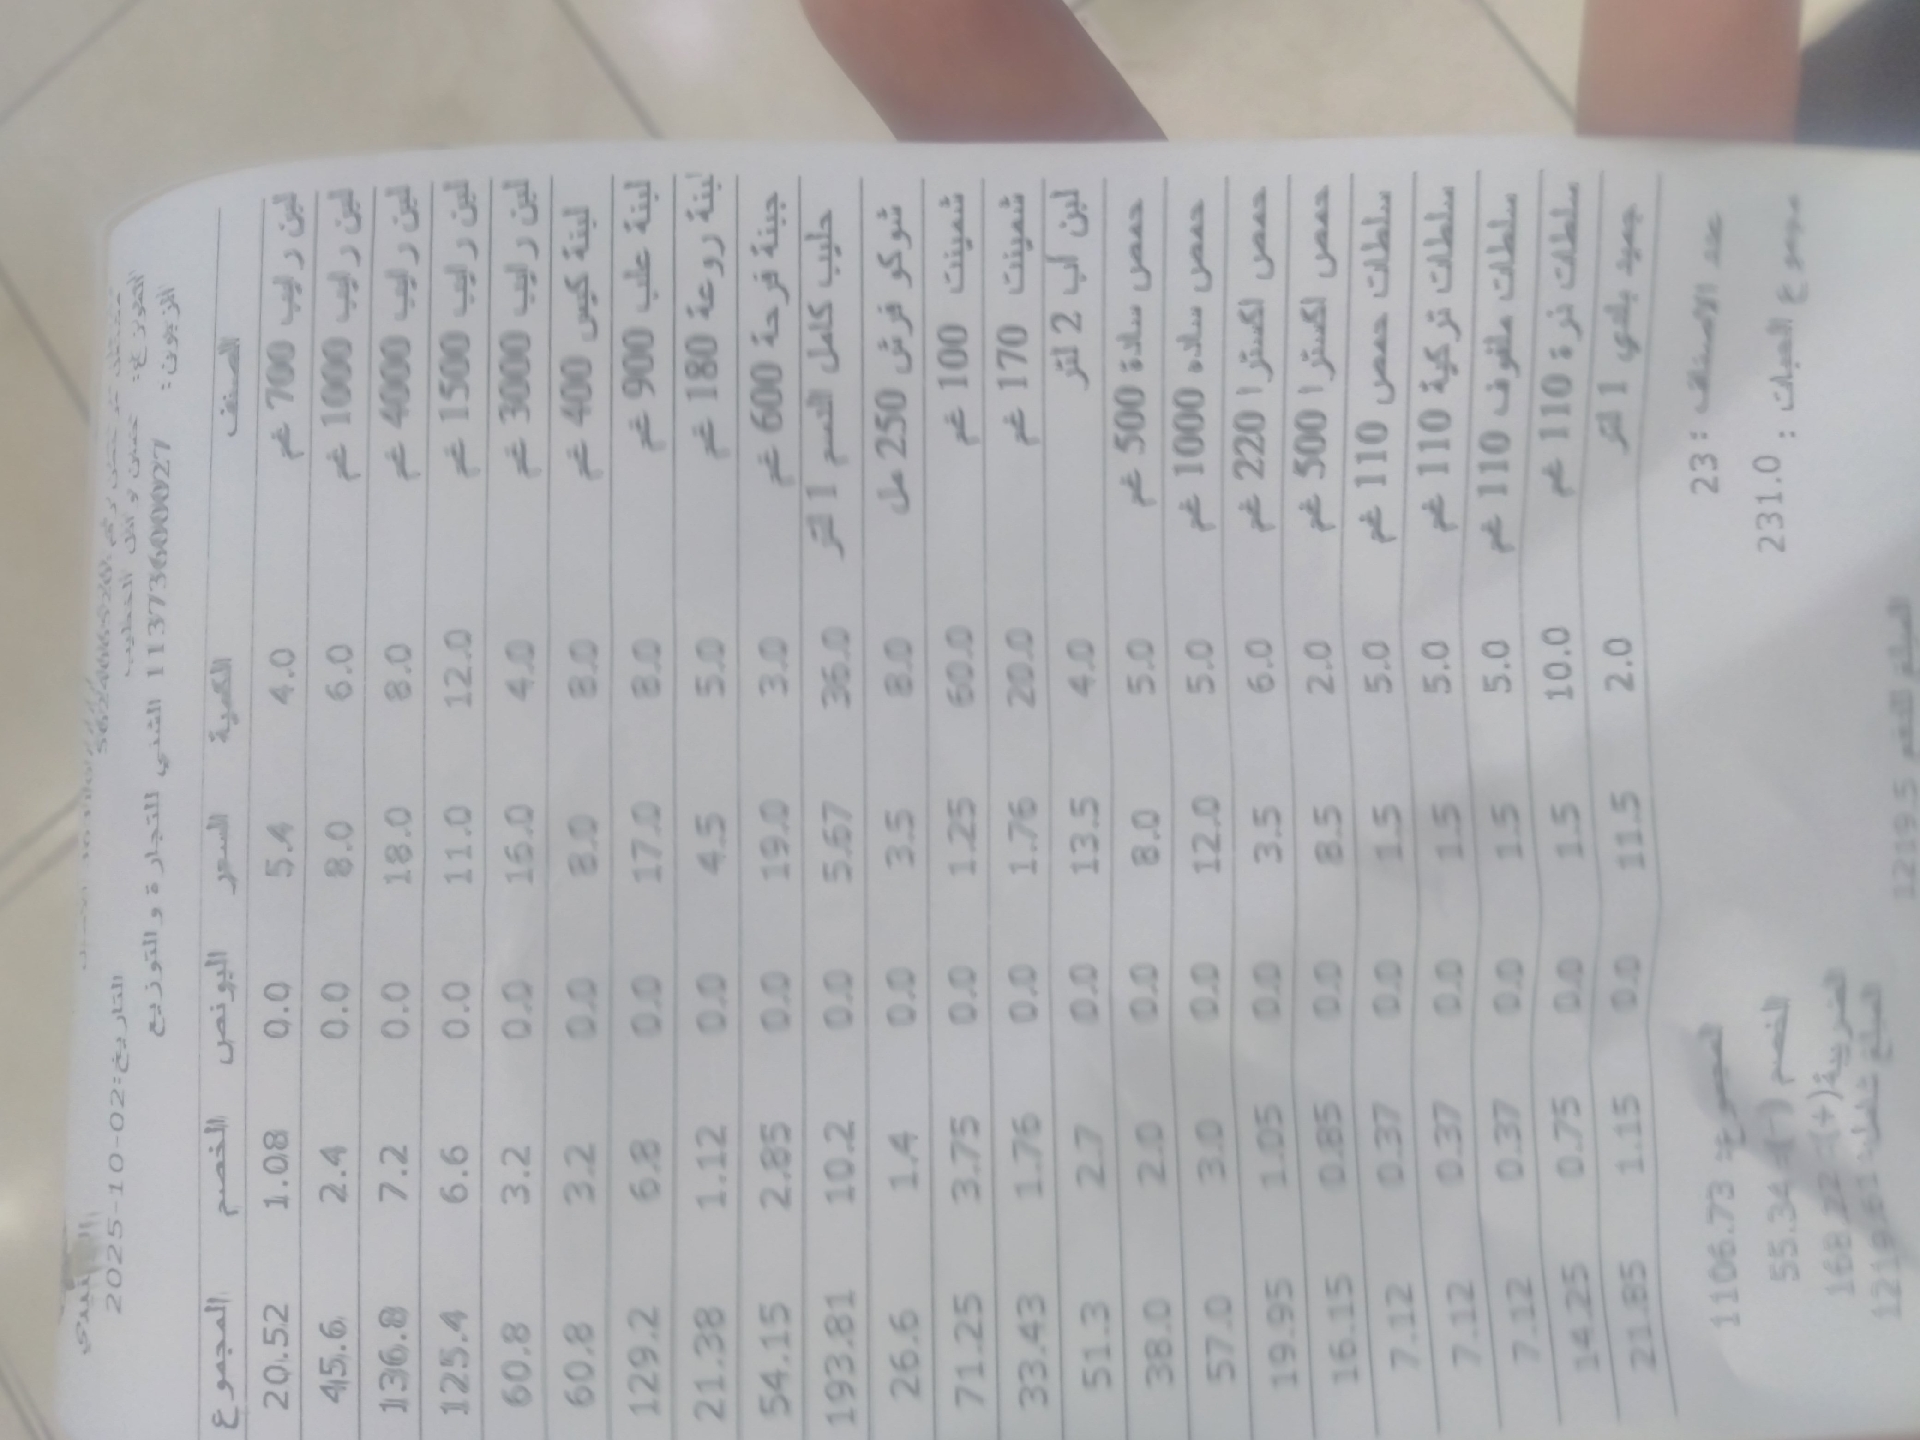 التاريخ: 2025-10-02
الموزع:
الزبون: 1137360000027 الثني للتجارة والتوزيع
الصنف الكمية السعر البونص الخصم المجموع
لبن رايب 700 غم 4.0 5.4 0.0 1.08 20.52
لبن رايب 1000 غم 6.0 8.0 0.0 2.4 45.6
لبن رايب 4000 غم 8.0 18.0 0.0 7.2 136.8
لبن رايب 1500 غم 12.0 11.0 0.0 6.6 125.4
لبن رايب 3000 غم 4.0 16.0 0.0 3.2 60.8
لبنة كيس 400 غم 8.0 8.0 0.0 3.2 60.8
لبنة علب 900 غم 8.0 17.0 0.0 6.8 129.2
لبنة روعة 180 غم 5.0 4.5 0.0 1.12 21.38
جبنة فرحة 600 غم 3.0 19.0 0.0 2.85 54.15
حليب كامل الدسم 1 لتر 36.0 5.67 0.0 10.2 193.81
شوكو فرش 250 مل 8.0 3.5 0.0 1.4 26.6
شمينت 100 غم 60.0 1.25 0.0 3.75 71.25
شمينت 170 غم 20.0 1.76 0.0 1.76 33.43
لبن اب 2 لتر 4.0 13.5 0.0 2.7 51.3
حمص سادة 500 غم 5.0 8.0 0.0 2.0 38.0
حمص ساده 1000 غم 5.0 12.0 0.0 3.0 57.0
حمص اكسترا 220 غم 6.0 3.5 0.0 1.05 19.95
حمص اكسترا 500 غم 2.0 8.5 0.0 0.85 16.15
سلطات حمص 110 غم 5.0 1.5 0.0 0.37 7.12
سلطات تركية 110 غم 5.0 1.5 0.0 0.37 7.12
سلطات ملفوف 110 غم 5.0 1.5 0.0 0.37 7.12
سلطات ذرة 110 غم 10.0 1.5 0.0 0.75 14.25
جميد بلدي 1 لتر 2.0 11.5 0.0 1.15 21.85
عدد الاصناف : 23 المجموع: 1106.73
مجموع الحبات : 231.0 الخصم (-): 55.34
الضريبة(+): 168.22
1219.61
1219.5